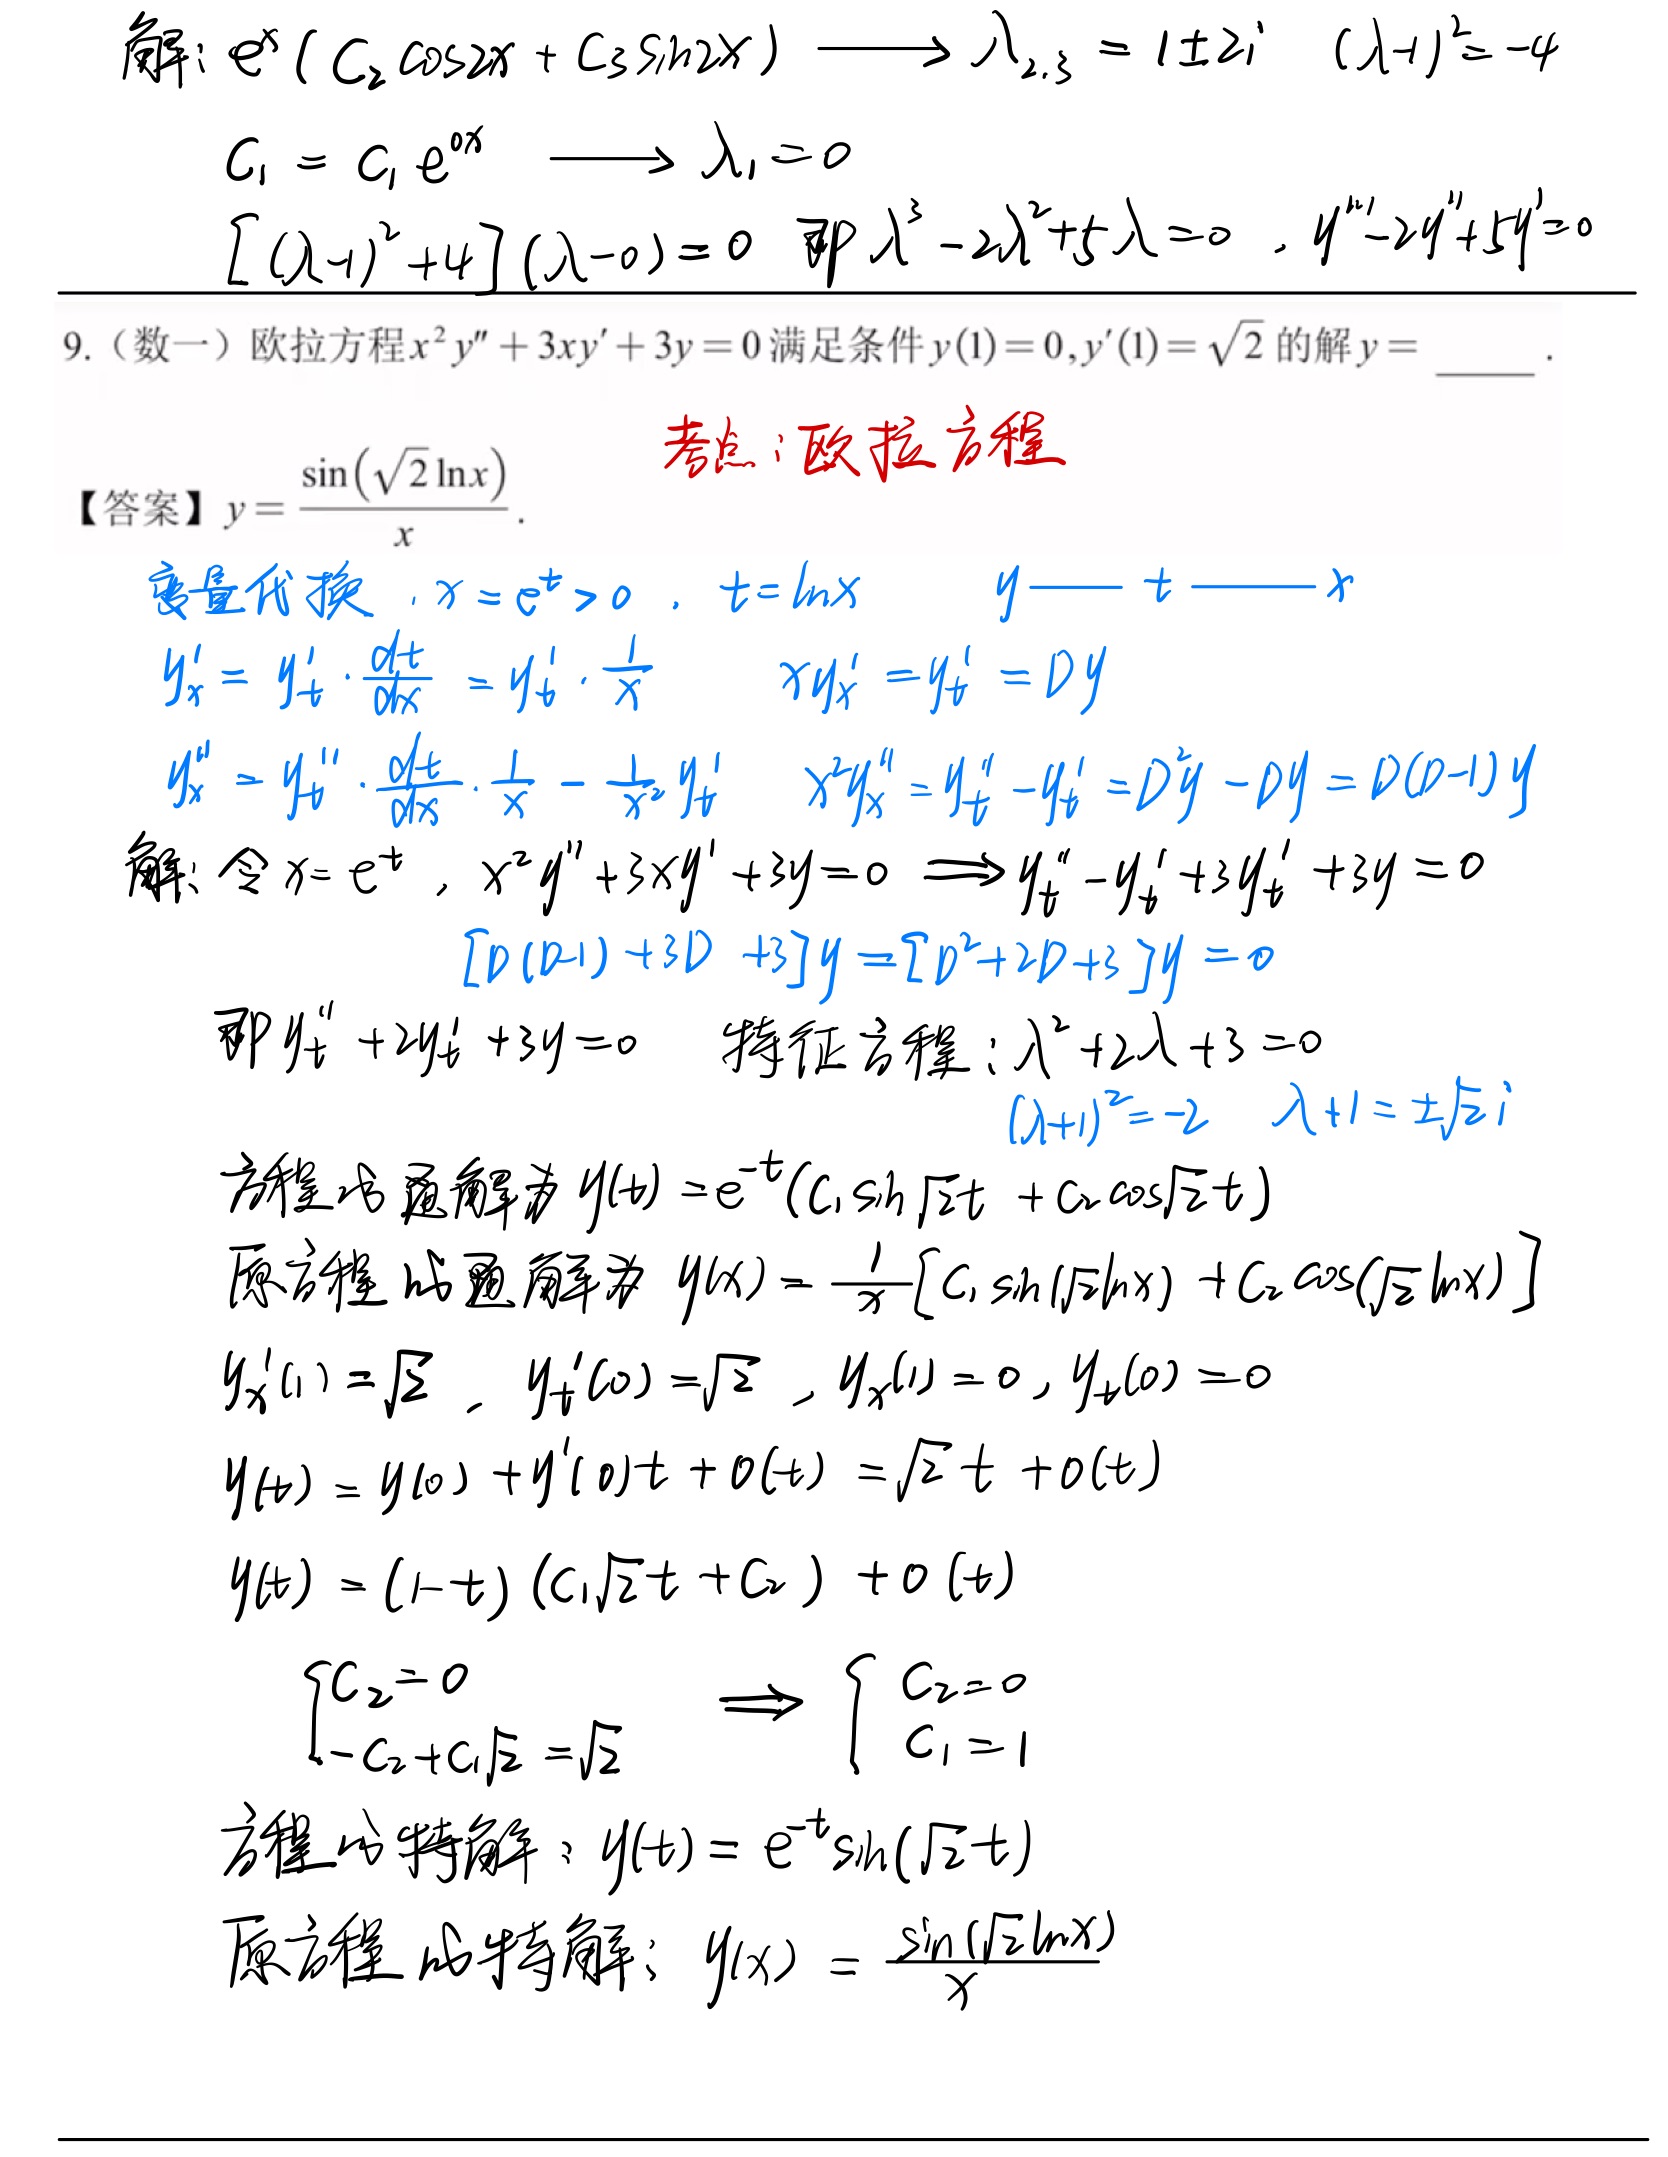 解: eˣ( C₂ cos2x + C₃ sin2x ) ⟶ λ₂.₃ = 1±2i (λ-1)² = -4
C₁ = C₁ e⁰ˣ ⟶ λ₁ = 0
[(λ-1)² + 4](λ-0) = 0 即 λ³ - 2λ² + 5λ = 0 , y''' - 2y'' + 5y' = 0
9.（数一）欧拉方程 x² y″ + 3xy′ + 3y = 0 满足条件 y(1) = 0, y′(1) = √2 的解 y = ____ .
考点:欧拉方程
【答案】 y = sin(√2 lnx) / x .
变量代换 , x = eᵗ > 0 , t = lnx y —— t —— x
y'ₓ = y'ₜ · dt/dx = y'ₜ · 1/x xy'ₓ = y'ₜ = Dy
y''ₓ = y''ₜ · dt/dx · 1/x - 1/x² y'ₜ x²y''ₓ = y''ₜ - y'ₜ = D²y - Dy = D(D-1)y
解: 令 x = eᵗ , x² y'' + 3xy' + 3y = 0 ⟹ y''ₜ - y'ₜ + 3y'ₜ + 3y = 0
[D(D-1) + 3D + 3]y = [D² + 2D + 3]y = 0
即 y''ₜ + 2y'ₜ + 3y = 0 特征方程: λ² + 2λ + 3 = 0
(λ+1)² = -2 λ+1 = ±√2 i
方程的通解为 y(t) = e⁻ᵗ(C₁ sin√2t + C₂ cos√2t)
原方程的通解为 y(x) = 1/x [C₁ sin(√2lnx) + C₂ cos(√2 lnx)]
y'ₓ(1) = √2 , y'ₜ(0) = √2 , yₓ(1) = 0 , yₜ(0) = 0
y(t) = y(0) + y'(0)t + o(t) = √2 t + o(t)
y(t) = (1-t)(C₁√2t + C₂) + o(t)
{ C₂ = 0 ⟹ { C₂ = 0
-C₂ + C₁√2 = √2 C₁ = 1
方程的特解: y(t) = e⁻ᵗ sin(√2t)
原方程的特解: y(x) = sin(√2lnx) / x